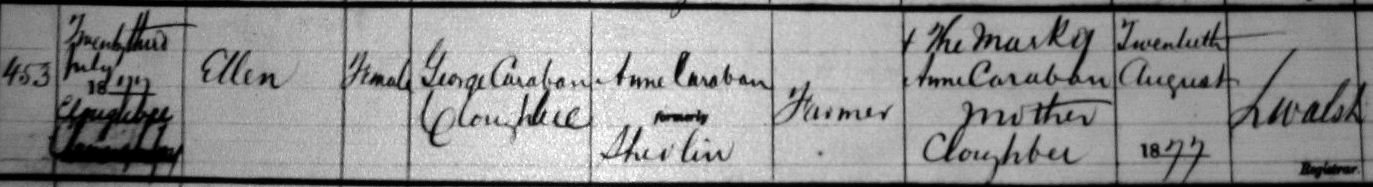 453
Twenty third
July
1877
Ellen
Female
George Caraban
Anne Caraban
formerly
Shevlin
Farmer
+ The Mark of
Anne Caraban
Mother
Cloughber
Twentieth
August
1877
L Walsh
Registrar.